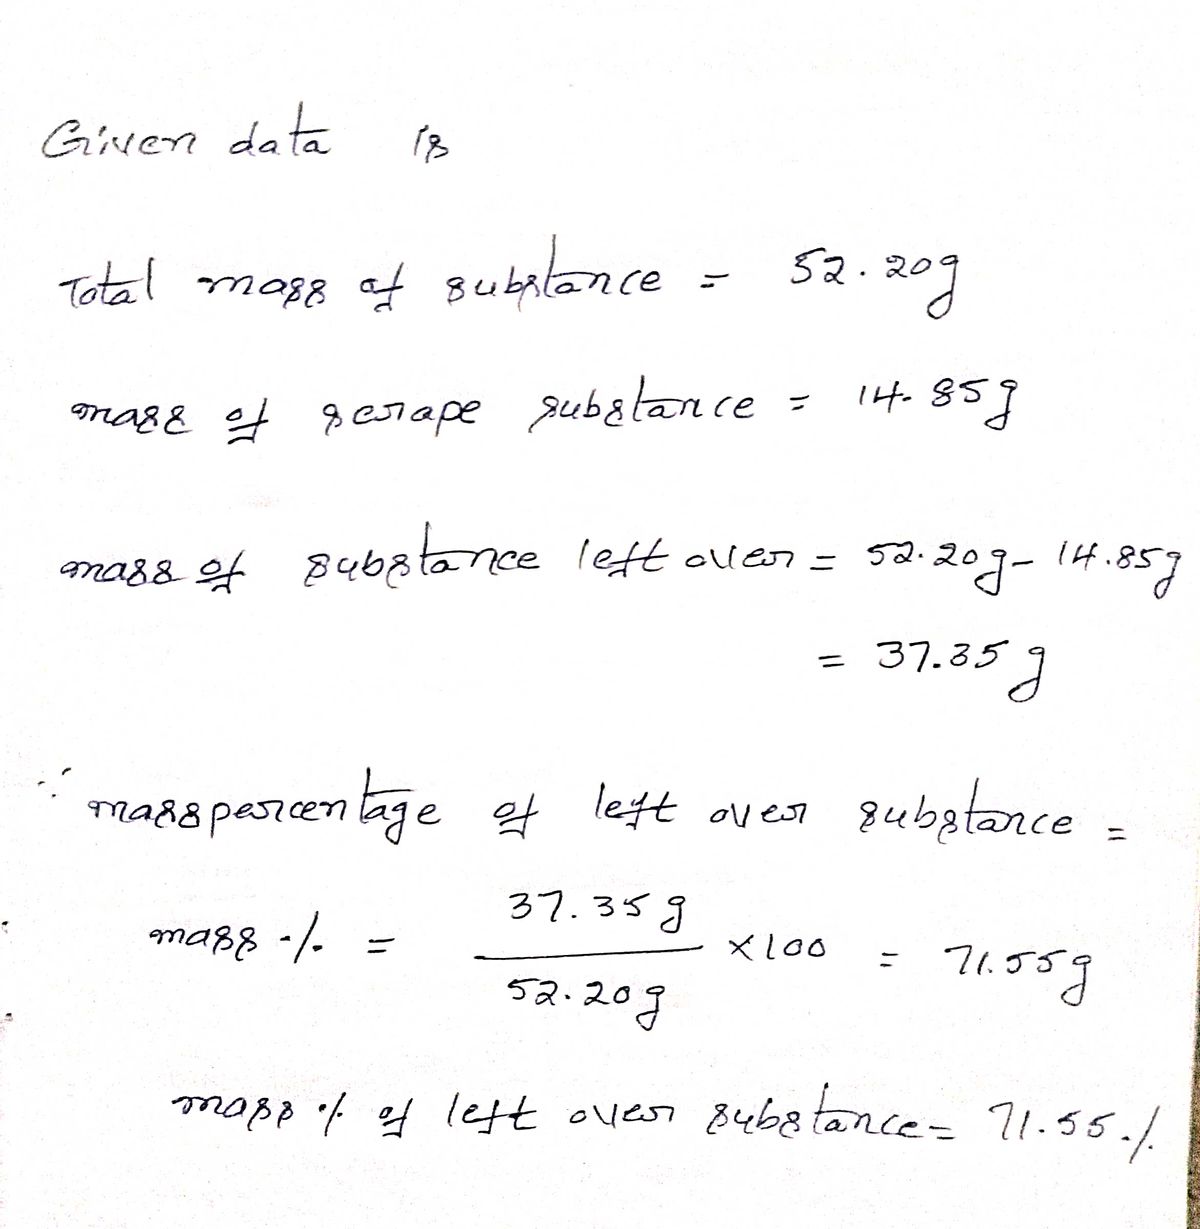 Given data is
Total mass of substance = 52.20g
mass of scrape substance = 14.85g
mass of substance left over = 52.20g - 14.85g
= 37.35 g
∴ mass percentage of left over substance =
mass % = 37.35 g / 52.20 g × 100 = 71.55g
mass % of left over substance = 71.55 %